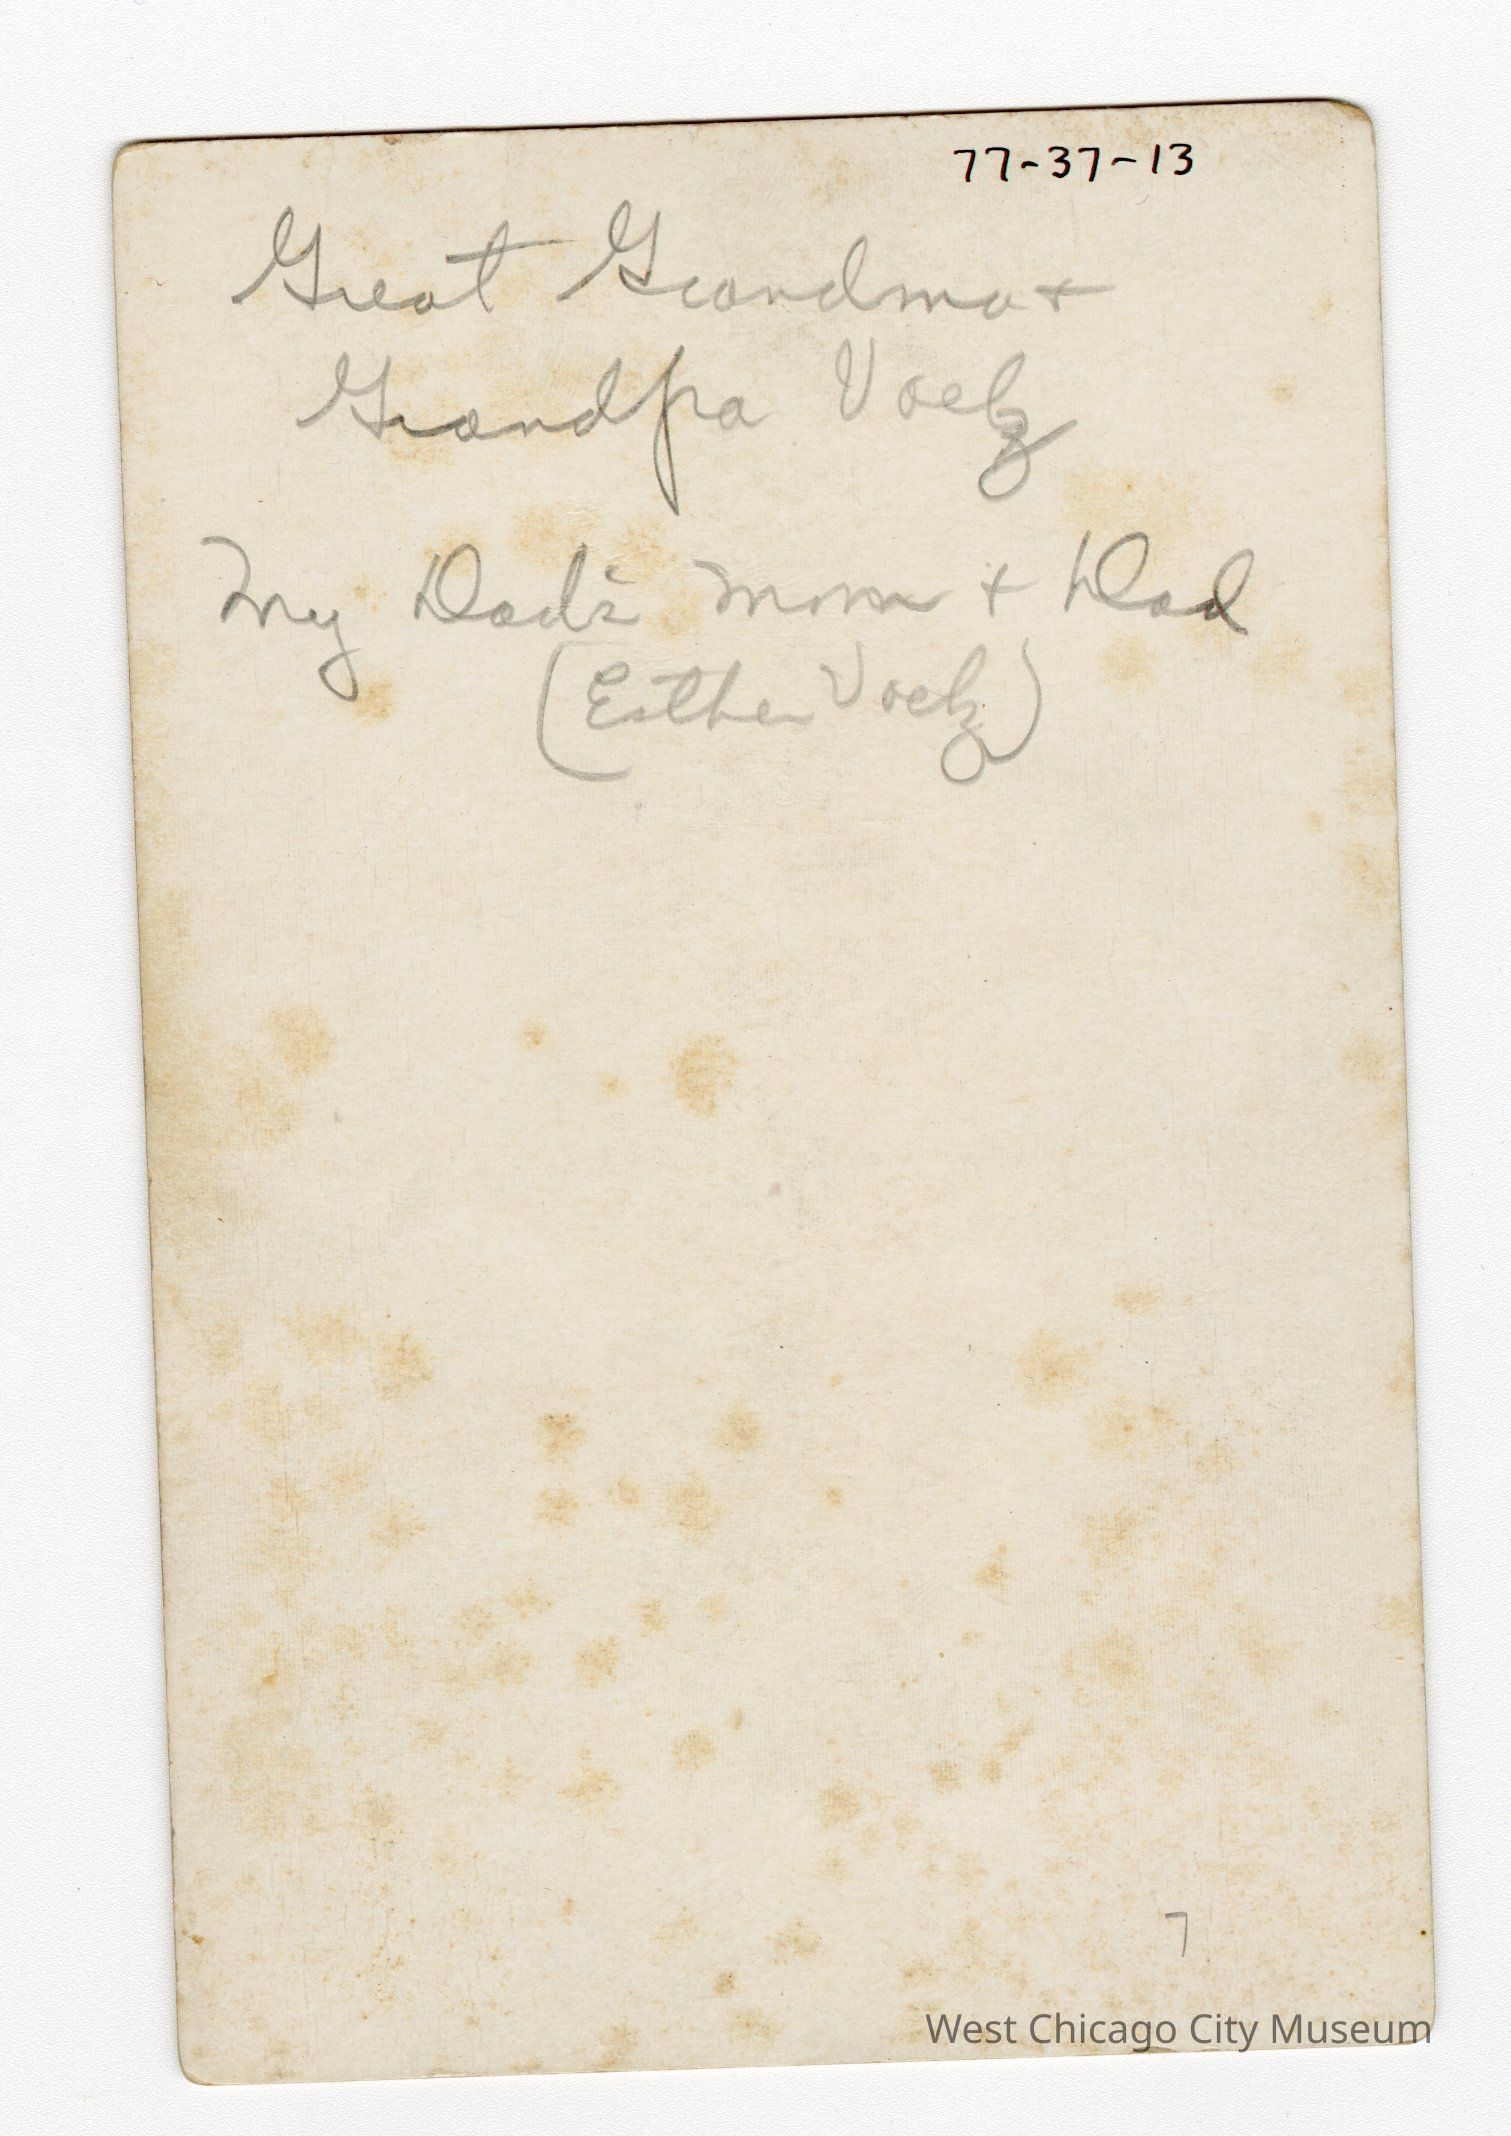 77-37-13
Great Grandma +
Grandpa Voelz
My Dad's Mom + Dad
(Esther Voelz)
7
West Chicago City Museum